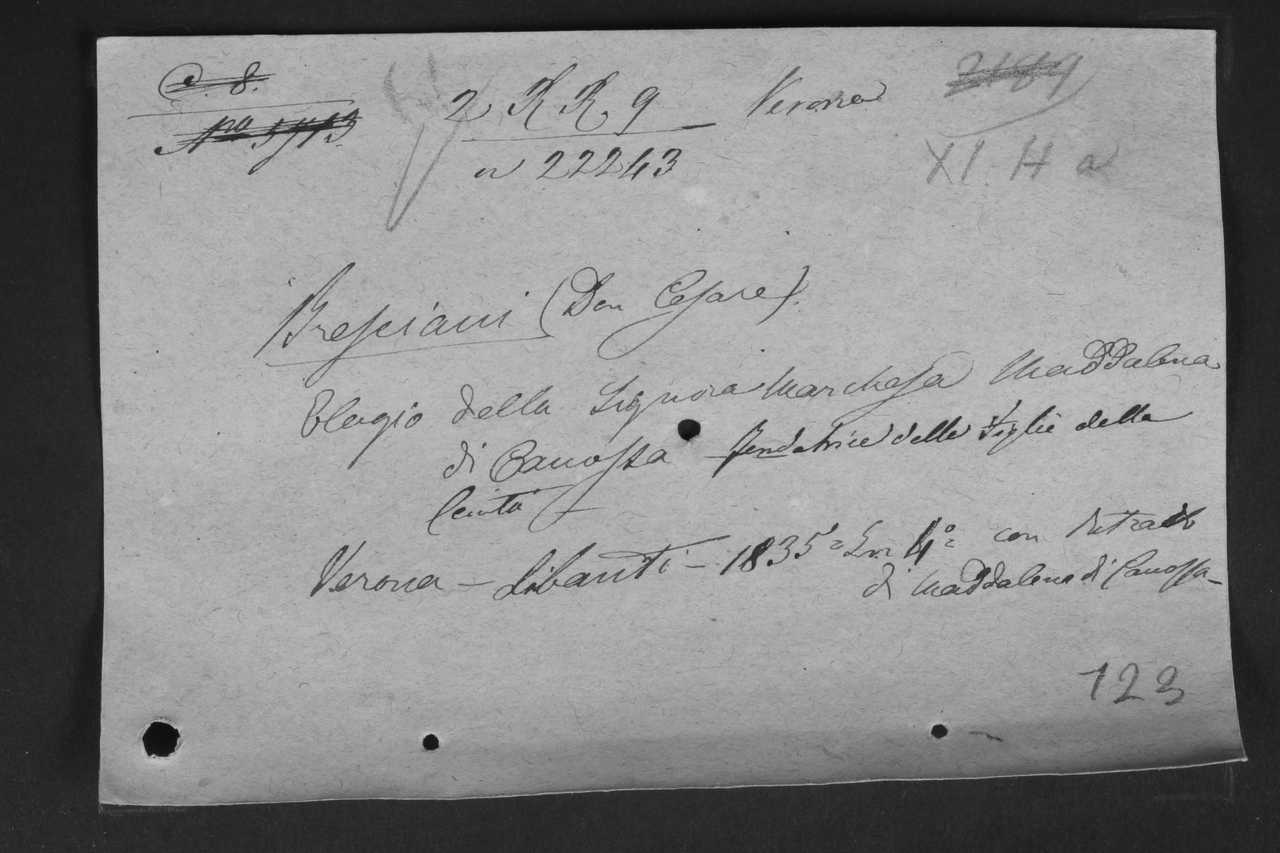 C. 8.
2 R R 9 Verona
N.ro
n 22243
XI. H a
Bresciani (Don Cesare).
Elogio della Signora Marchesa Maddalena
di Canossa fondatrice delle Figlie della
Carità
Verona - Libanti - 1835 = In 4° = con ritratto
di Maddalena di Canossa -
123